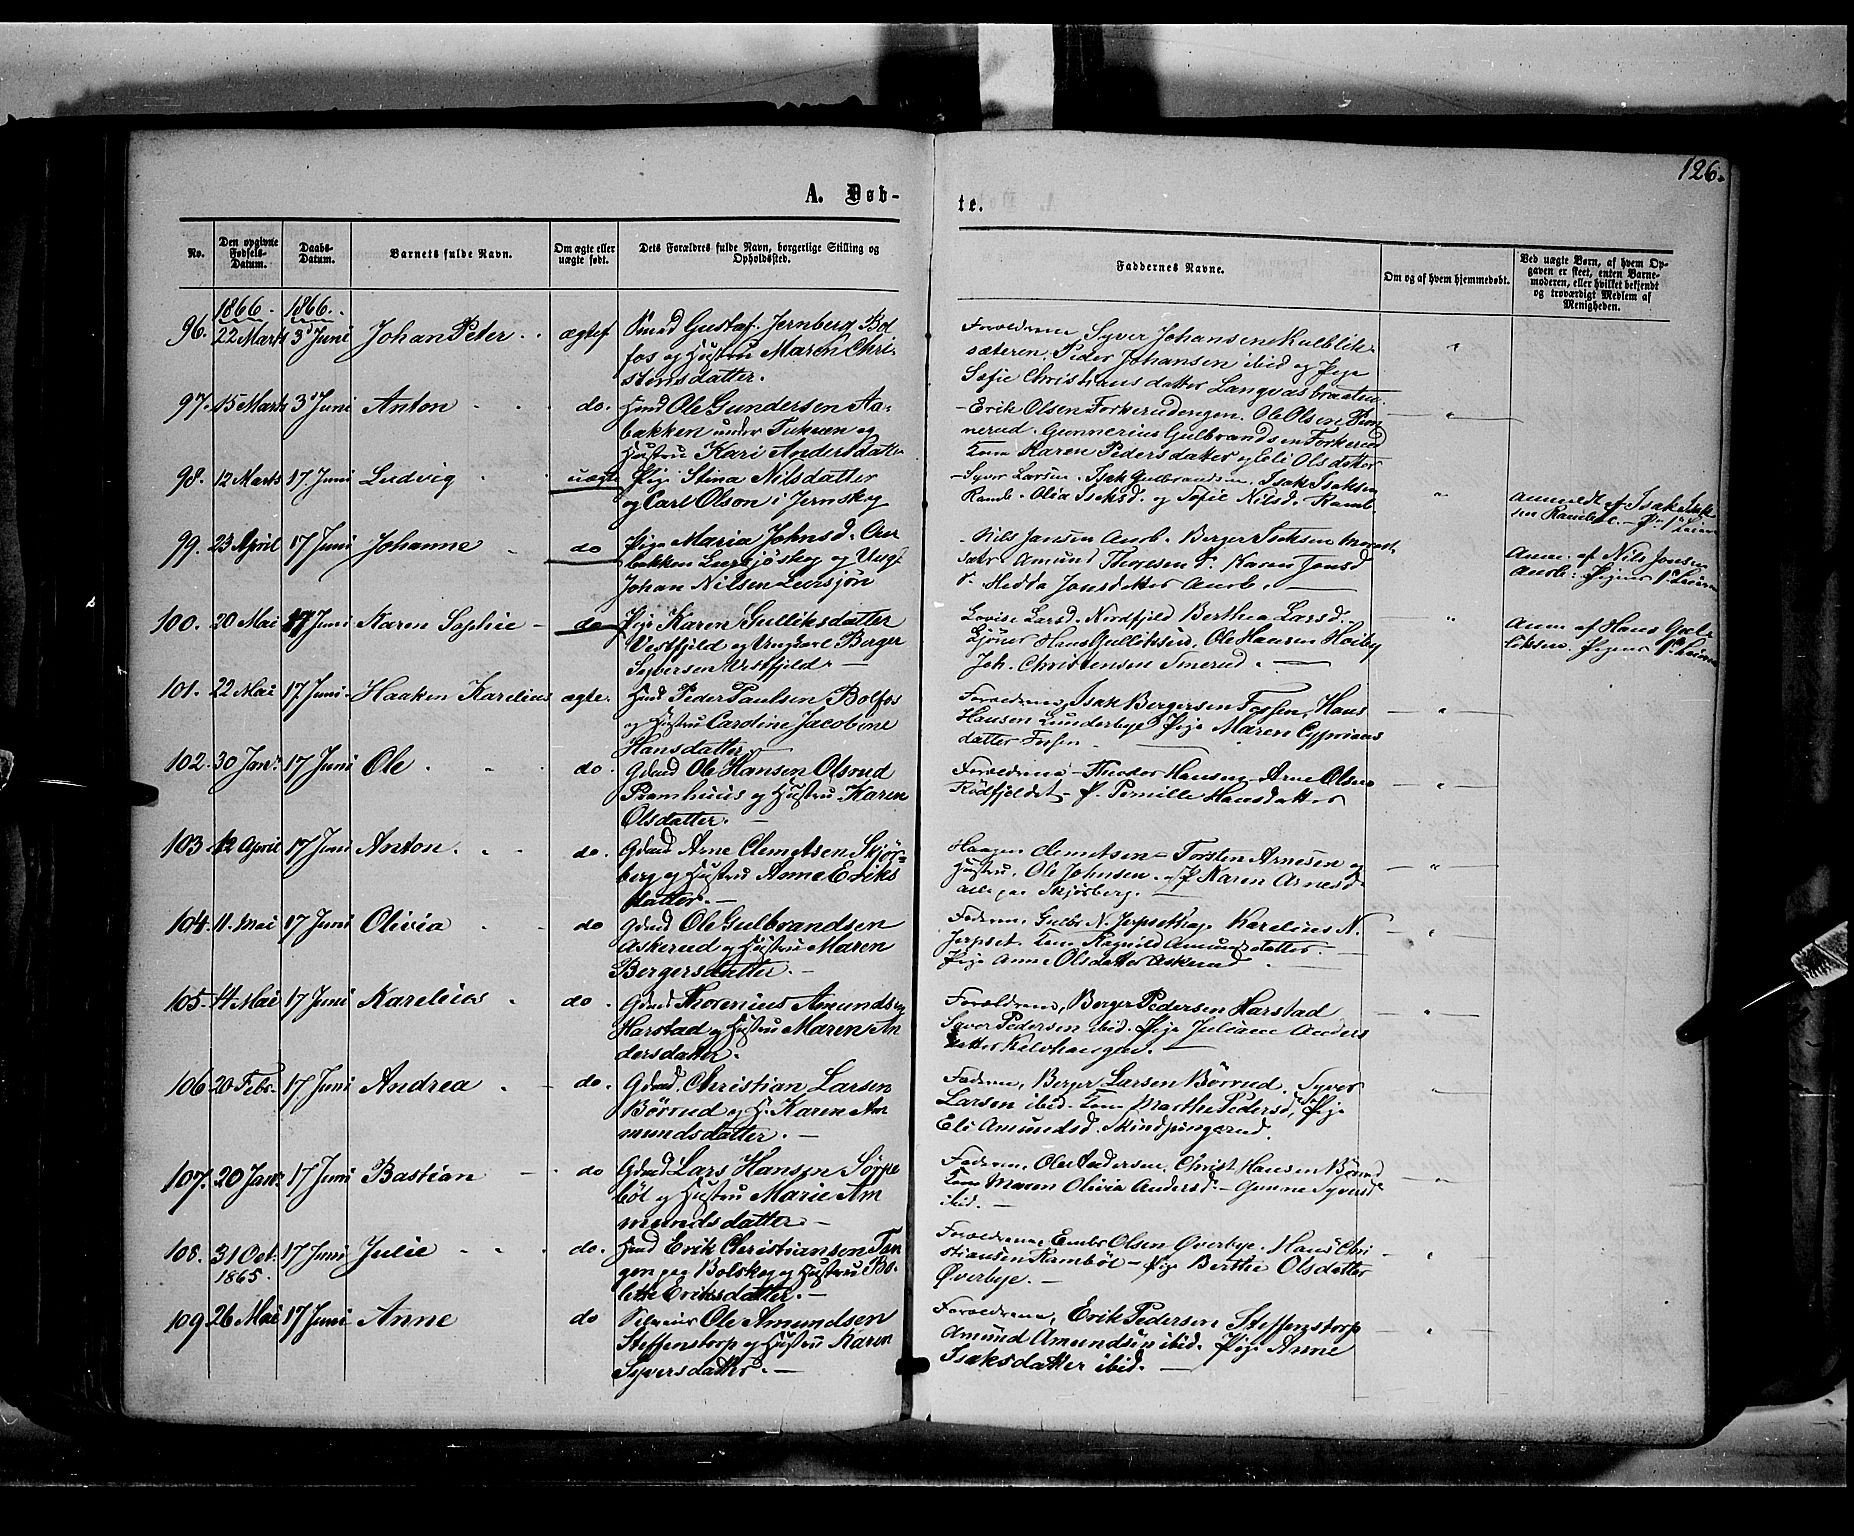 126.
A. Døb-
te.
No.
Den opgivne Fødsels-Datum.
Daabs-Datum.
Barnets fulde Navn.
Om ægte eller uægte født.
Dets Forældres fulde Navn, borgerlige Stilling og Opholdssted.
Faddernes Navne.
Om og af hvem hjemmedøbt.
Ved uægte Børn, af hvem Opgaven er skeet, enten Barnemoderen, eller hvilket bekjendt og troværdigt Medlem af Menigheden.
1866. 1866.
96. 22 Marts 3d Juni Johan Peter ægtef. Smed Gustaf Jernberg Bol
fos og Hustru Maren Chri-
stensdatter.
Forældrene Syver Johansen Kulblik
sæteren. Peder Johansen ibid og Pige
Sofie Christiansdatter Langvasbraaten.
97. 15 Marts 3d Juni Anton do. Hmd Ole Gundersen Aa-
bakken under og
Hustru Kari Andersdatter
Erik Olsen Forkerudengen. Ole Olsen
nerud. Gunnerius Gulbrandsen Forkerud
Karen Pedersdatter og Eli Olsdatter
98. 12 Marts 17 Juni Ludvig uægte Pige Stina Nilsdatter
og Carl Olson i Jernskog
Syver Larsen. Isak Gulbrandsen. Isak Isaksen
Ramb. Olia Isaksd. og Sofie Nilsd. Ramb.
Anmeldt af Isak Isak
sen Rambøl. -
99. 23 April 17 Juni Johanne do Pige Maria Johnsd.
bakken og Ungk
Johan Nilsen
Nils Jansen Aurb. Berger Isaksen
Amund Thoresen Karen Jonsd
Hedda Jonsdatter Aurb. -
Anm. af Nils Jonsen
Aurb. Pigens 1ste
100. 20 Mai 17 Juni Karen Sophie - do Pige Karen Gulliksdatter
Vestfjeld og Ungkarl Berger
Syversen Vestfjeld. -
Lovise Larsd. Nordfjeld Berthea Larsd.
Hans Gulliksen. Ole Hansen Høiby
Joh. Christensen Smerud. -
Anm. af Hans Gul-
liksen. Pigens 1ste
101. 22 Mai 17 Juni. Haaken Karelius ægte. Hmd Peder Paulsen Bolfos
og Hustru Caroline Jacobine
Hansdatter.
Forældrene, Isak Bergersen Fossen, Hans
Hansen Lunderbye Pige Maren Cyprians
datter Fossen -
102. 30 Janr. 17 Juni Ole do. Gdmd Ole Hansen Olsrud
Pramhuus og Hustru Karen
Olsdatter. -
Forældrene - Theodor Hansen - Arne Olsen
Rødfjeldet - P. Pernille Hansdatter
103. 12 April 17 Juni Anton. do. Gdmd Arne Clemetsen Skjør-
berg og Hustru Anne Eriks
datter. -
Haagen Clemetsen - Torsten Arnesen og
Hustru. Ole Johnsen. P Karen Arnesd
alle paa Skjørberg. -
104. 11. Mai 17 Juni Olivia do Gdmd Ole Gulbrandsen
Askerud og Hustru Maren
Bergersdatter. -
Faderen, Gulbr. N. Jerpset Karelius N.
Jerpset. Ragnild Amundsdatter. -
Pige Anne Olsdatter Askerud
105. 14 Mai 17 Juni Karelius do. Gdmd Thorenius Amundsen
Harstad og Hustru Maren An
dersdatter.
Forældrene, Berger Pedersen Harstad
Syver Pedersen ibid. Pige Juliane Anders
datter -
106 20 Febr. 17 Juni Andrea do. Gdmd. Christian Larsen
Børrud og H. Karen Am
mundsdatter. -
Faderen, Berger Larsen Børrud. Syver
Larsen ibid. Marthe Pedersd, Pige
Eli Amundsd. Skindpungerud.
107. 20 Janr. 17 Juni Bastian do Gdmd Lars Hansen Sørpe
bøl og Hustru Marie Am
mundsdatter -
Faderen, Ole Andersen. Christ. Hansen Børrud
Maren Olivia Andersd. - Gunne Syversd
ibid. -
108. 31 Oct. 17 Juni Julie do. Hmd Erik Christiansen Tan
1865. gen paa Bolskog og Hustru Bo-
lette Eriksdatter. -
Forældrene, Embr Olsen Øverbye. Hans Chri
stiansen Rambøl - Pige Berthe Olsdatter
Øverbye. -
109 26 Mai 17 Juni Anne do Selveier Ole Amundsen
Steffenstorp og Hustru Karen
Syversdatter. -
Forældrene, Erik Pedersen Steffenstorp
Amund Amundsen ibid. Pige Anne
Isaksdatter ibid. -